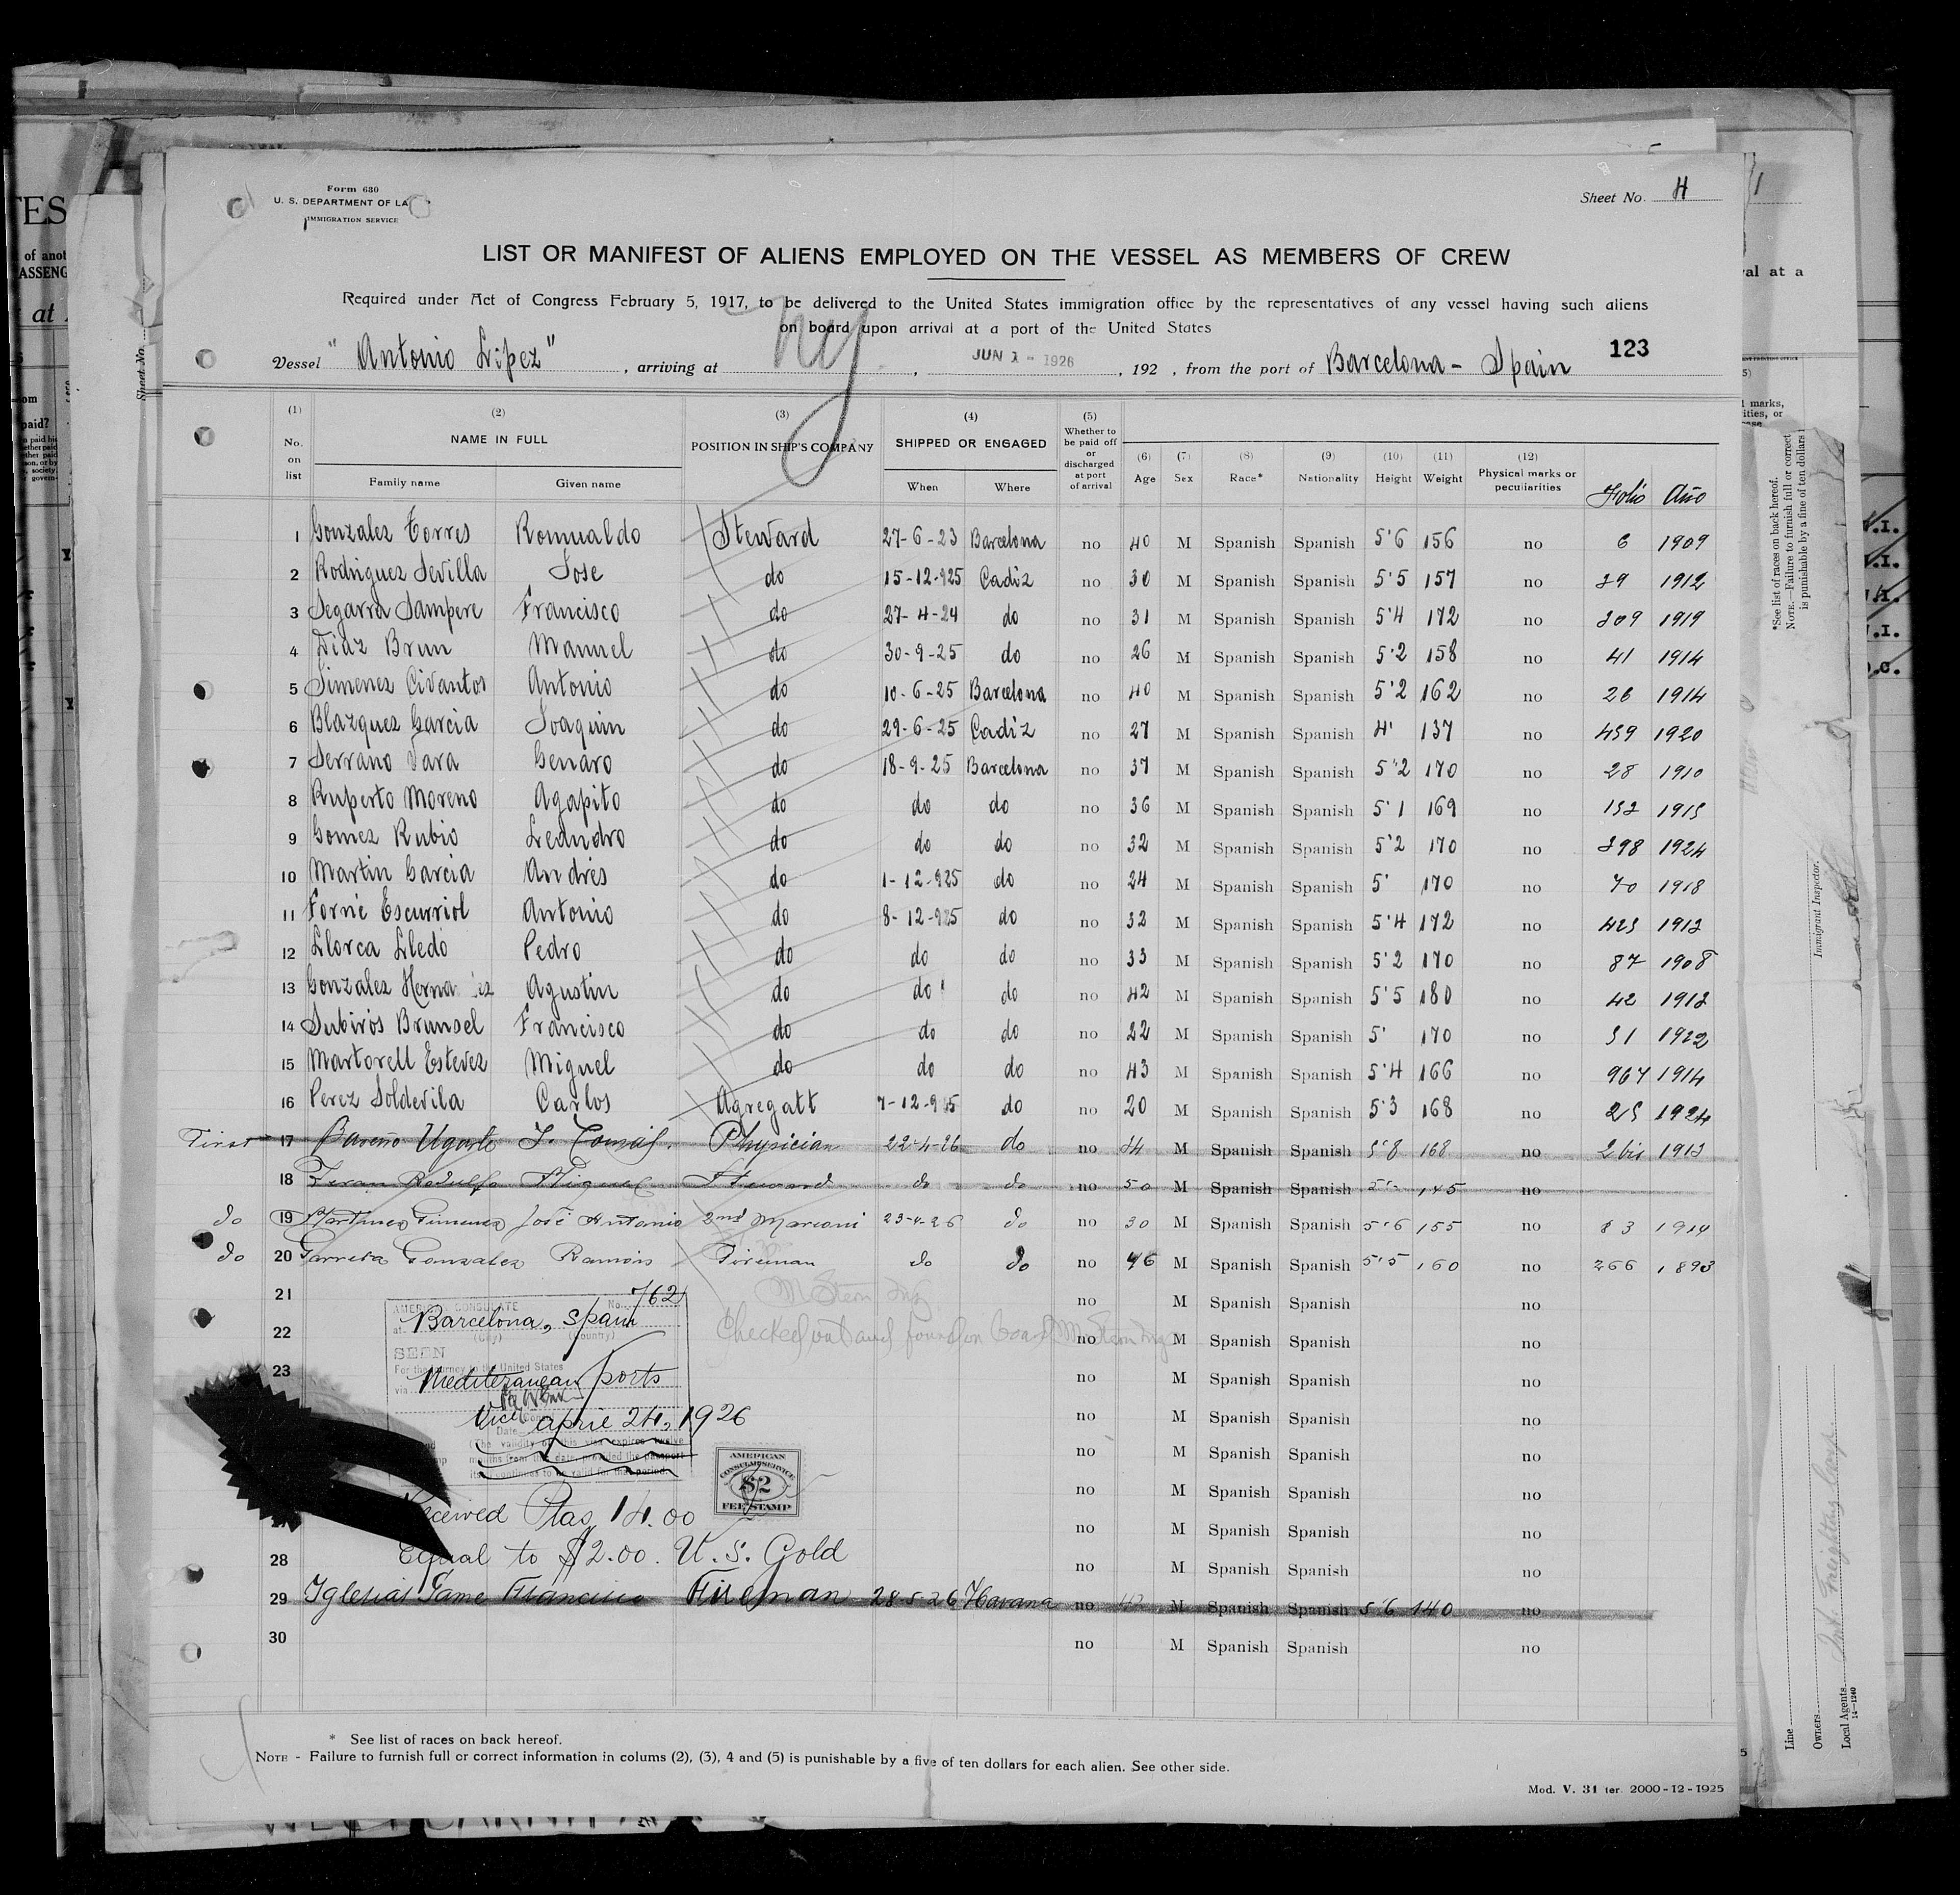 Form 680
U. S. DEPARTMENT OF LA
IMMIGRATION SERVICE
Sheet No. 4
LIST OR MANIFEST OF ALIENS EMPLOYED ON THE VESSEL AS MEMBERS OF CREW
Required under Act of Congress February 5, 1917, to be delivered to the United States immigration office by the representatives of any vessel having such aliens
on board upon arrival at a port of the United States
Vessel "Antonio López", arriving at NY, JUN 1 - 1926, 192 , from the port of Barcelona - Spain 123
(1) No. on list (2) NAME IN FULL Family name Given name (3) POSITION IN SHIP'S COMPANY (4) SHIPPED OR ENGAGED When Where (5) Whether to be paid off or discharged at port of arrival (6) Age (7) Sex (8) Race* (9) Nationality (10) Height (11) Weight (12) Physical marks or peculiarities Folio Año
1 Gonzalez Torres Romualdo Steward 27-6-23 Barcelona no 40 M Spanish Spanish 5'6 156 no 6 1909
2 Rodriguez Sevilla Jose do 15-12-925 Cadiz no 30 M Spanish Spanish 5'5 157 no 39 1912
3 Segarra Sampere Francisco do 27-4-24 do no 31 M Spanish Spanish 5'4 172 no 309 1919
4 Diaz Brun Manuel do 30-9-25 do no 26 M Spanish Spanish 5'2 158 no 41 1914
5 Jimenez Civantos Antonio do 10-6-25 Barcelona no 40 M Spanish Spanish 5'2 162 no 26 1914
6 Blazquez Garcia Joaquin do 29-6-25 Cadiz no 27 M Spanish Spanish 4' 137 no 459 1920
7 Serrano Vara Genaro do 18-9-25 Barcelona no 37 M Spanish Spanish 5'2 170 no 28 1910
8 Ruperto Moreno Agapito do do do no 36 M Spanish Spanish 5'1 169 no 152 1915
9 Gomez Rubio Leandro do do do no 32 M Spanish Spanish 5'2 170 no 398 1924
10 Martin Garcia Andrés do 1-12-925 do no 24 M Spanish Spanish 5' 170 no 70 1918
11 Forné Escurriol Antonio do 8-12-925 do no 32 M Spanish Spanish 5'4 172 no 425 1913
12 Llorca Lledó Pedro do do do no 33 M Spanish Spanish 5'2 170 no 87 1908
13 Gonzalez Agustin do do do no 42 M Spanish Spanish 5'5 180 no 42 1913
14 Subirós Brunsel Francisco do do do no 22 M Spanish Spanish 5' 170 no 51 1922
15 Martorell Estevez Miguel do do do no 43 M Spanish Spanish 5'4 166 no 967 1914
16 Perez Soldevila Carlos Agregatt 7-12-925 do no 20 M Spanish Spanish 5'3 168 no 25 1924
First 17 Ugarte Physician 22-4-26 do no 34 M Spanish Spanish 5'8 168 no 2 bis 1913
18 Miguel Steward do do no 50 M Spanish Spanish 145 no
do 19 Martinez Gimenez José Antonio 2nd Marconi 23-4-26 do no 30 M Spanish Spanish 5'6 155 no 83 1914
do 20 Gonzalez Ramon Fireman do do no 46 M Spanish Spanish 5'5 160 no 266 1893
21 no M Spanish Spanish no
22 Checked out and found on board no M Spanish Spanish no
23 no M Spanish Spanish no
no M Spanish Spanish no
no M Spanish Spanish no
no M Spanish Spanish no
no M Spanish Spanish no
28 no M Spanish Spanish no
29 Iglesias Game Francisco Fireman 28-5-26 Havana no M Spanish Spanish 5'6 140 no
30 no M Spanish Spanish no
AMERICAN CONSULATE No. 762
at Barcelona, Spain
(City) (Country)
SEEN
For the journey to the United States
via Mediterranean ports
Vice Consul
Date April 24, 1926
(The validity of this visa expires twelve
months from this date, provided the passport
itself continues to be valid for that period.
AMERICAN CONSULAR SERVICE $2 FEE STAMP
Received Ptas 14.00
Equal to $2.00. U. S. Gold
* See list of races on back hereof.
NOTE - Failure to furnish full or correct information in colums (2), (3), 4 and (5) is punishable by a five of ten dollars for each alien. See other side.
Mod. V. 31 ter. 2000-12-1925
*See list of races on back hereof.
NOTE.—Failure to furnish full or correct
is punishable by a fine of ten dollars
Immigrant Inspector.
Line
Owners
Local Agents
14—1240